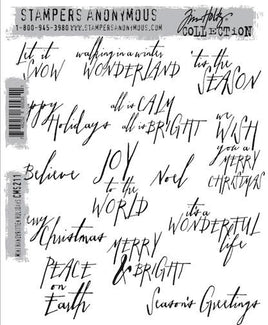 STAMPERS ANONYMOUS
1-800-945-3980 WWW.STAMPERSANONYMOUS.COM
Tim Holtz
COLLECTION
Let it
SNOW
walking in a winter
WONDERLAND
'tis the
SEASON
Happy
Holidays
all is CALM
all is BRIGHT
we
WISH
you a
MERRY
CHRISTMAS
Believe
JOY
to the
WORLD
Noel
Merry
Christmas
it's a
WONDERFUL
life
MERRY
& BRIGHT
PEACE
on
Earth
Season's Greetings
CMS211